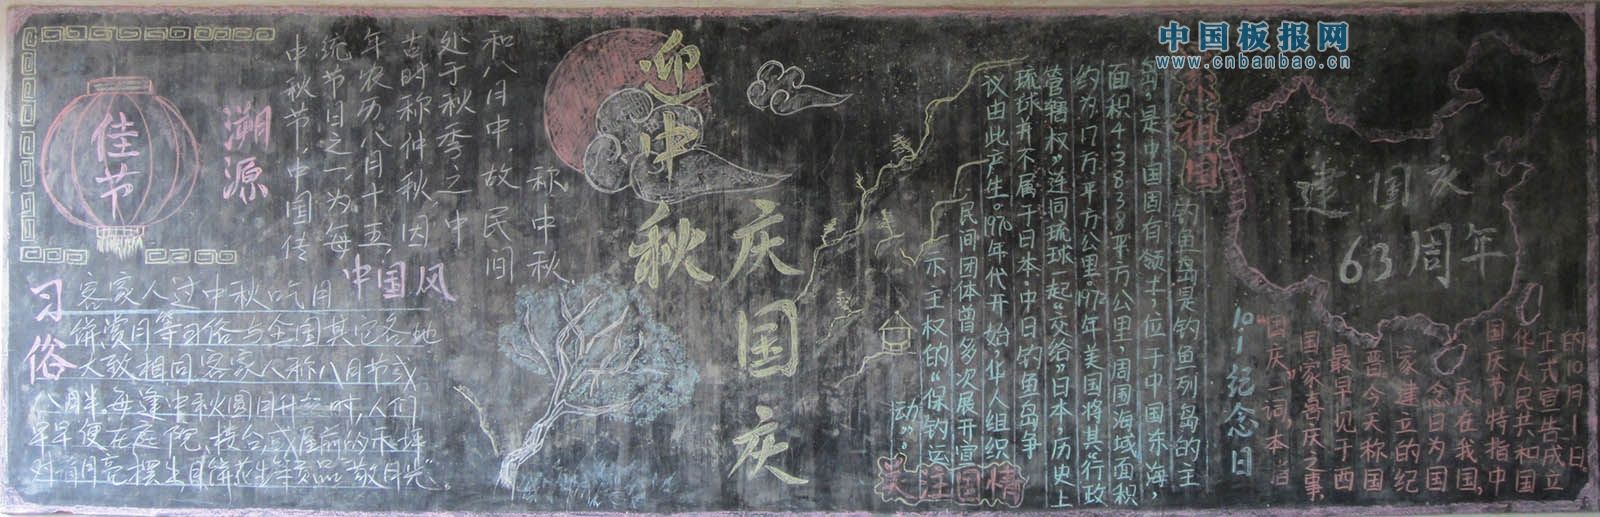 中国板报网
www.cnbanbao.cn
佳节
溯源
中秋节,中国传
统节日之一,为每
年农历八月十五,
古时称仲秋,因
处于秋季之中
和八月中,故民间
称中秋,
中国风
习俗
客家人过中秋吃月
饼赏月等习俗与全国其它各地
大致相同,客家人称八月节或
八月半。每逢中秋圆月升起时,人们
早早便在庭院、楼台,或屋前的禾坪
对着月亮摆出月饼花生等贡品"敬月光"。
迎中秋
庆国庆
钓鱼岛是钓鱼列岛的主
岛,是中国固有领土,位于中国东海,
面积4.3838平方公里,周围海域面积
约为17万平方公里。1972年美国将其"行政
管辖权"连同琉球一起"交给"日本,历史上
琉球并不属于日本。中日钓鱼岛争
议由此产生。1970年代开始,华人组织
民间团体曾多次展开宣
示主权的"保钓运
动"。
关注国情
祖国
建国庆
63周年
10.1纪念日
"国庆"一词,本
国家喜庆之事
最早见于西
晋今天称国
家建立的纪
念日为国
庆,在我国,
国庆节特指中
华人民共和国
正式宣告成立
的10月1日。